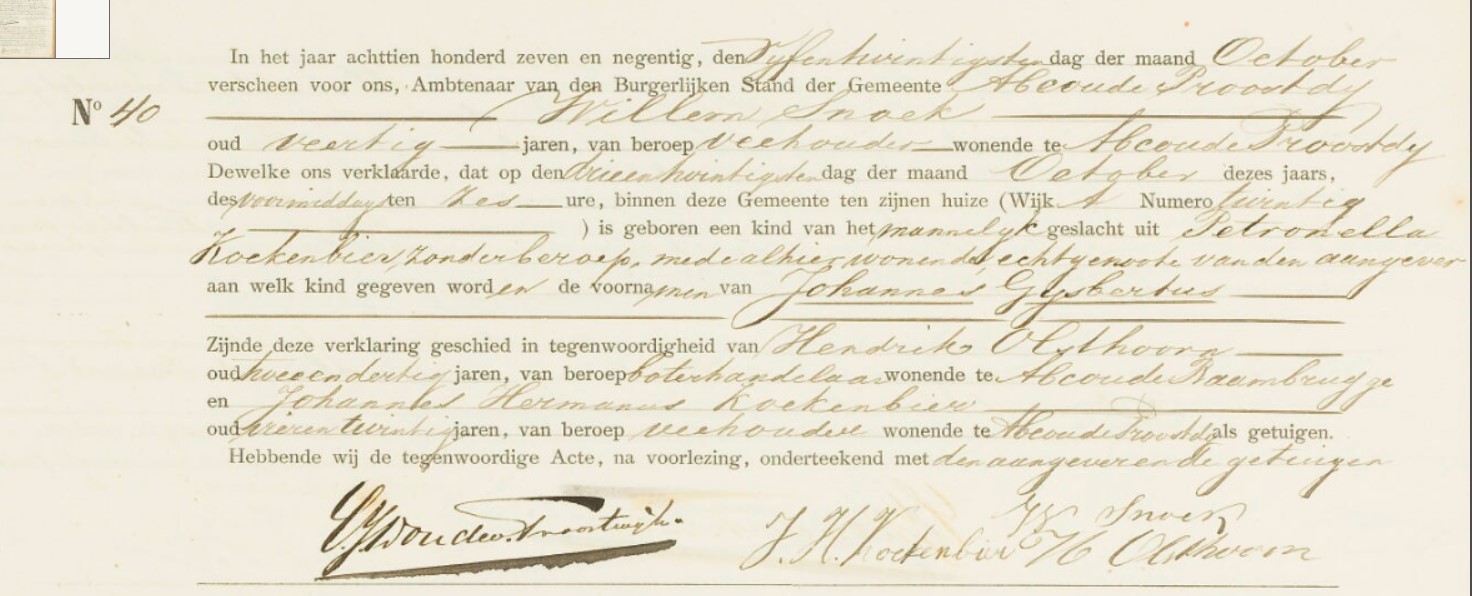 In het jaar achttien honderd zeven en negentig, den Vyfentwintigsten dag der maand October
verscheen voor ons, Ambtenaar van den Burgerlijken Stand der Gemeente Abcoude Proostdy
Nº 40
Willem Snoek
oud veertig jaren, van beroep veehouder wonende te Abcoude Proostdy
Dewelke ons verklaarde, dat op den drieentwintigsten dag der maand October dezes jaars,
des voormiddags ten zes ure, binnen deze Gemeente ten zijnen huize (Wijk A Numero twintig
) is geboren een kind van het mannelyk geslacht uit Petronella
Kockenbier, zonder beroep, mede alhier wonende, echtgenoote van den aangever
aan welk kind gegeven worden de voornamen van Johannes Gysbertus
Zijnde deze verklaring geschied in tegenwoordigheid van Hendrik Olsthoorn
oud tweeendertig jaren, van beroep boterhandelaar wonende te Abcoude Baambrugge
en Johannes Hermanus Kockenbier
oud vierentwintig jaren, van beroep veehouder wonende te Abcoude Proostdy als getuigen.
Hebbende wij de tegenwoordige Acte, na voorlezing, onderteekend met den aangever en de getuigen
W Snoek
J. H. Kockenbier H Olsthoorn